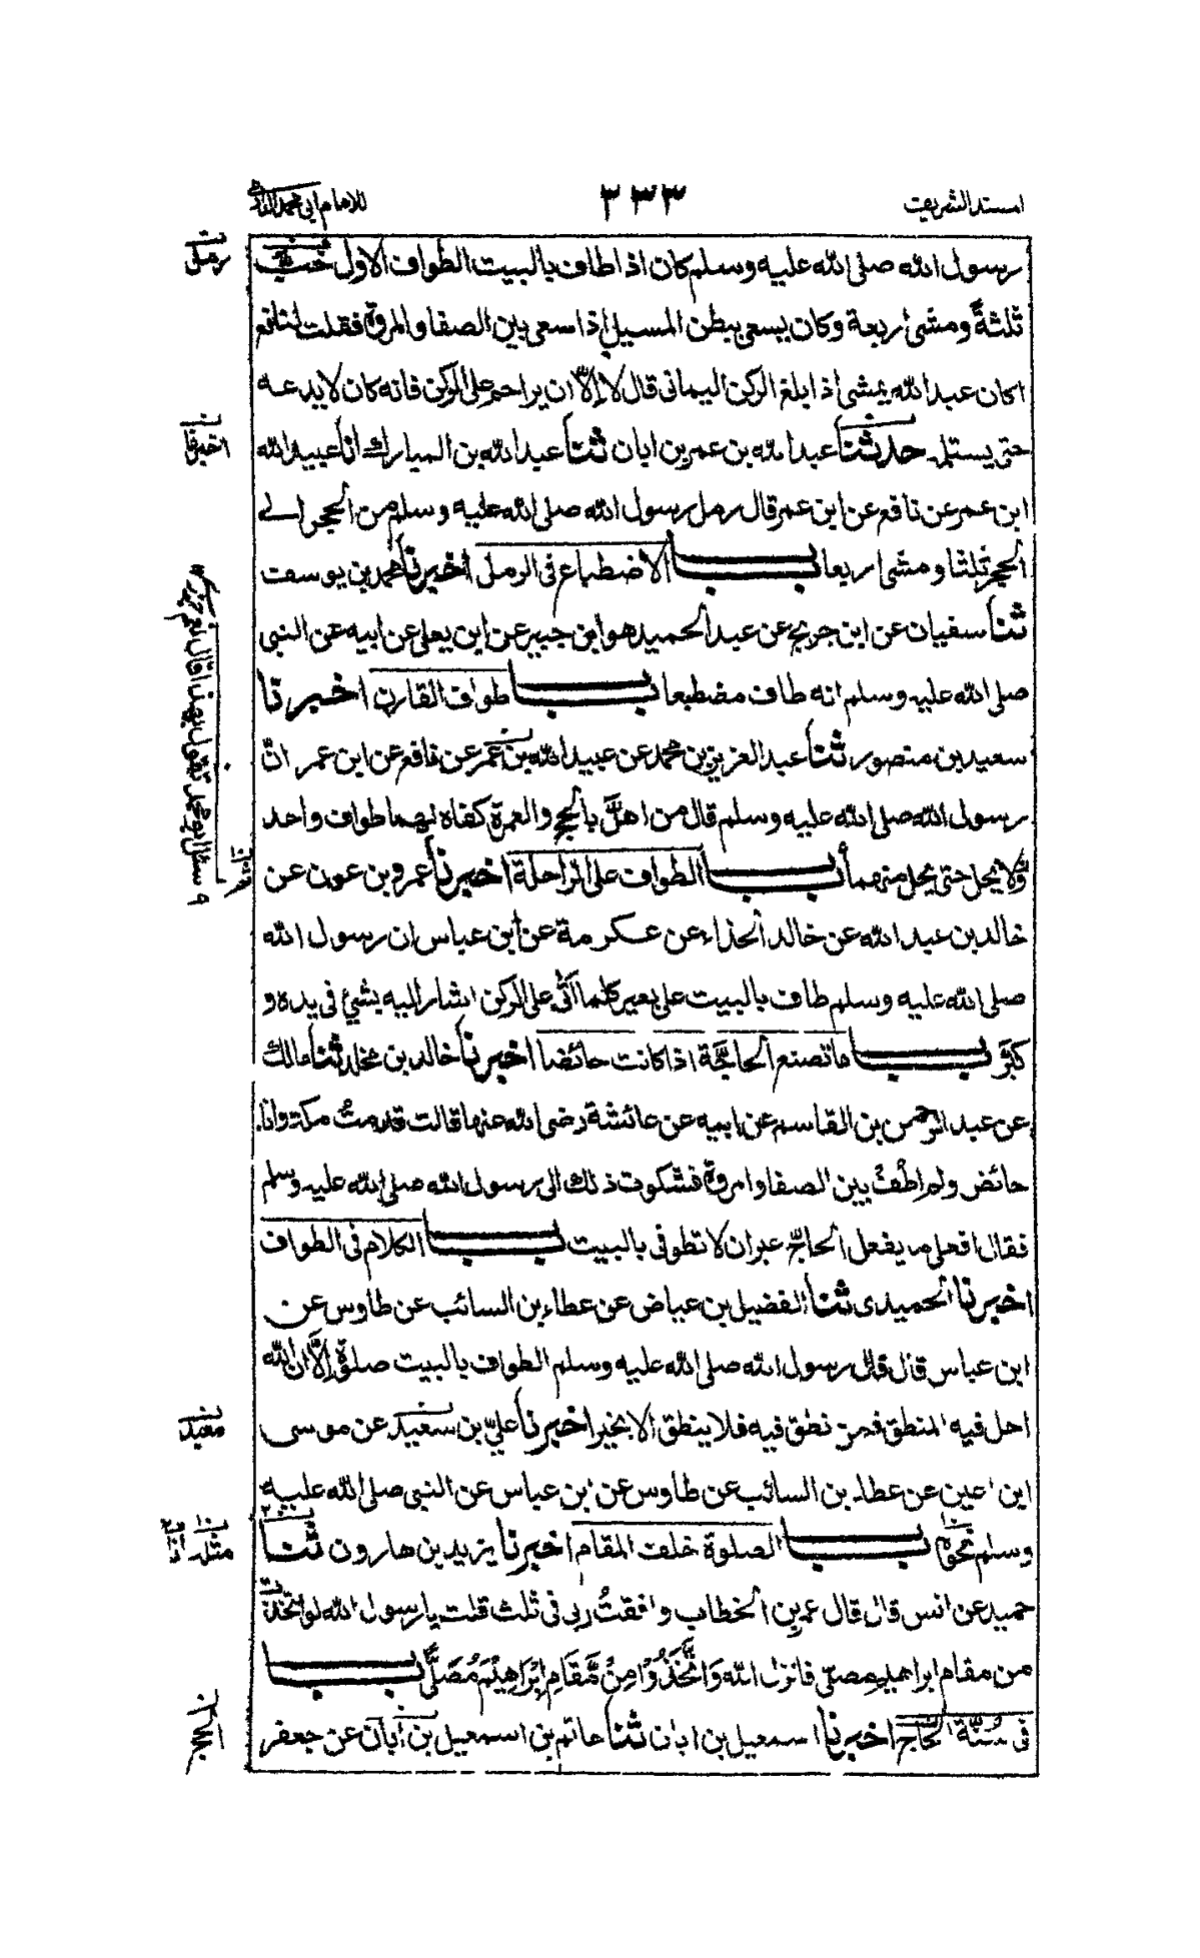 المسند الشريف
٢٣٣
للامام ابي محمد الدارمي
رسول الله صلى الله عليه وسلم كان اذا طاف بالبيت الطواف الاول خبّ
ثلثةً ومشى اربعة وكان يسعى ببطن المسيل اذا سعى بين الصفا والمروة فقلت لنافع
اكان عبد الله يمشى اذا بلغ الركن اليمانى قال لا الّا ان يزاحم على الركن فانه كان لا يدعه
حتى يستلمه حدثنا عبد الله بن عمر بن ابان ثنا عبد الله بن المبارك انا عبيد الله
ابن عمر عن نافع عن ابن عمر قال رمل رسول الله صلى الله عليه وسلم من الحجر الى
الحجر ثلثا ومشى اربعا باب الاضطباع فى الرمل اخبرنا محمد بن يوسف
ثنا سفيان عن ابن جريج عن عبد الحميد هو ابن جبير عن ابن يعلى عن ابيه عن النبى
صلى الله عليه وسلم انه طاف مضطبعا باب طواف القارن اخبرنا
سعيد بن منصور ثنا عبد العزيز بن محمد عن عبيد الله بن عمر عن نافع عن ابن عمر انّ
رسول الله صلى الله عليه وسلم قال من اهلّ بالحج والعمرة كفاه لهما طواف واحد
ولا يحل حتى يحل منهما باب الطواف على الراحلة اخبرنا عمرو بن عون عن
خالد بن عبد الله عن خالد الحذاء عن عكرمة عن ابن عباس ان رسول الله
صلى الله عليه وسلم طاف بالبيت على بعير كلما اتى على الركن اشار اليه بشئ فى يده و
كبّر باب ما تصنع الحاجّة اذا كانت حائضا اخبرنا خالد بن مخلد ثنا مالك
عن عبد الرحمن بن القاسم عن ابيه عن عائشة رضى الله عنها قالت قدمتُ مكة وانا
حائض ولم اطُفْ بين الصفا والمروة فشكوت ذلك الى رسول الله صلى الله عليه وسلم
فقال افعلى ما يفعل الحاجّ غير ان لا تطوفى بالبيت باب الكلام فى الطواف
اخبرنا الحميدى ثنا الفضيل بن عياض عن عطاء بن السائب عن طاوس عن
ابن عباس قال قال رسول الله صلى الله عليه وسلم الطواف بالبيت صلوة الّا ان الله
احل فيه المنطق فمن نطق فيه فلا ينطق الا بخير اخبرنا علىّ بن سعيد عن موسى
ابن اعين عن عطاء بن السائب عن طاوس عن ابن عباس عن النبى صلى الله عليه
وسلم نحوه باب الصلوة خلف المقام اخبرنا يزيد بن هارون ثنا
حميد عن انس قال قال عمر بن الخطاب وافقتُ ربى فى ثلث قلت يا رسول الله لو اتخذت
من مقام ابراهيم مصلّى فانزل الله وَاتَّخِذُوْا مِنْ مَّقَامِ اِبْرَاهِيْمَ مُصَلًّى باب
فى سُنّة الحاجّ اخبرنا اسمعيل بن ابان ثنا حاتم بن اسمعيل بن أبان عن جعفر
رمل
اخبرنا
٩ سئل ابو محمد تقول بهذا قال نعم
معبد
مثله
انا